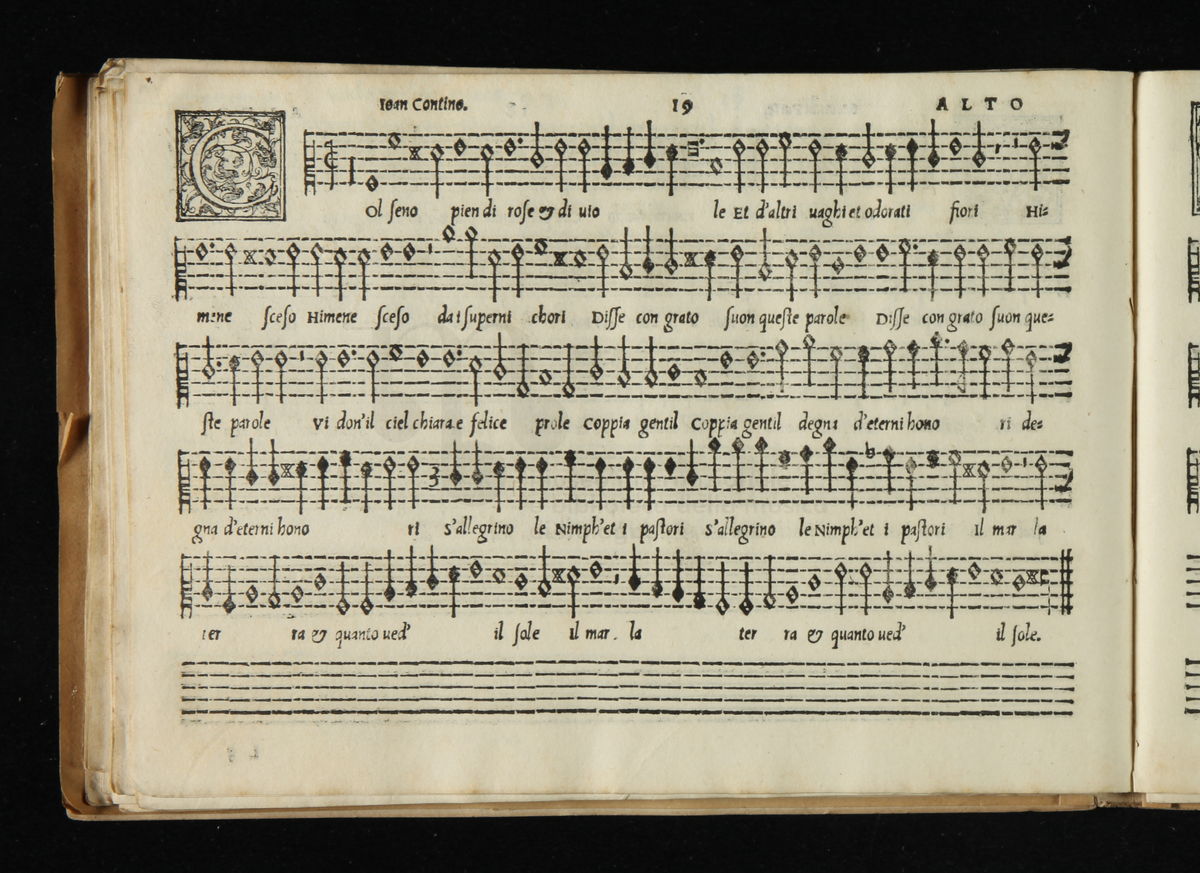 Ioan Contino. 19 ALTO
COl seno pien di rose & di uio le Et d'altri uaghi et odorati fiori Hi=
mene sceso Himene sceso da i superni chori Disse con grato suon queste parole Disse con grato suon que=
ste parole Vi don'il ciel chiara e felice prole Coppia gentil Coppia gentil degna d'eterni hono ri de=
gna d'eterni hono ri S'allegrino le Nimph'et i pastori S'allegrino le Nimph'et i pastori Il mar la
ter ra & quanto ued' il sole Il mar la ter ra & quanto ued' il sole.